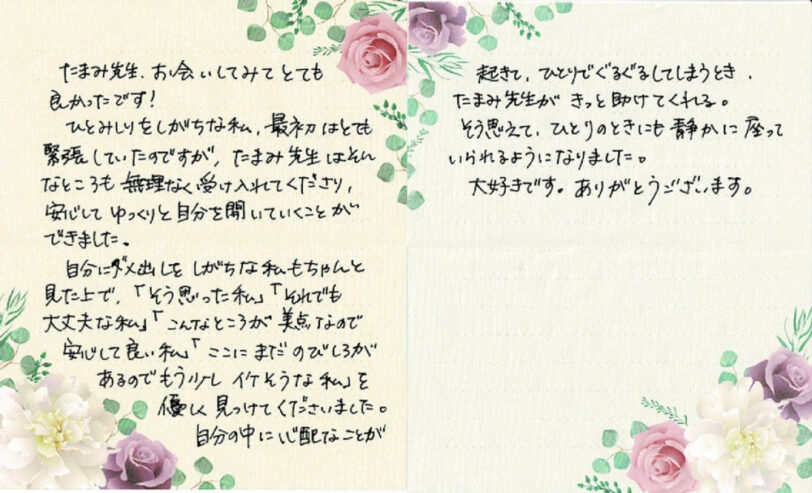 たまみ先生、お会いしてみてとても
良かったです！
ひとみしりをしがちな私、最初はとても
緊張していたのですが、たまみ先生はそん
なところも無理なく受け入れてくださり、
安心してゆっくりと自分を開いていくことが
できました。
自分にダメ出しをしがちな私もちゃんと
見た上で、「そう思った私」「それでも
大丈夫な私」「こんなところが美点なので
安心して良い私」「ここにまだのびしろが
あるのでもう少しイケそうな私」を
優しく見つけてくださいました。
自分の中に心配なことが
起きて、ひとりでぐるぐるしてしまうとき、
たまみ先生がきっと助けてくれる。
そう思えて、ひとりのときにも静かに座って
いられるようになりました。
大好きです。ありがとうございます。